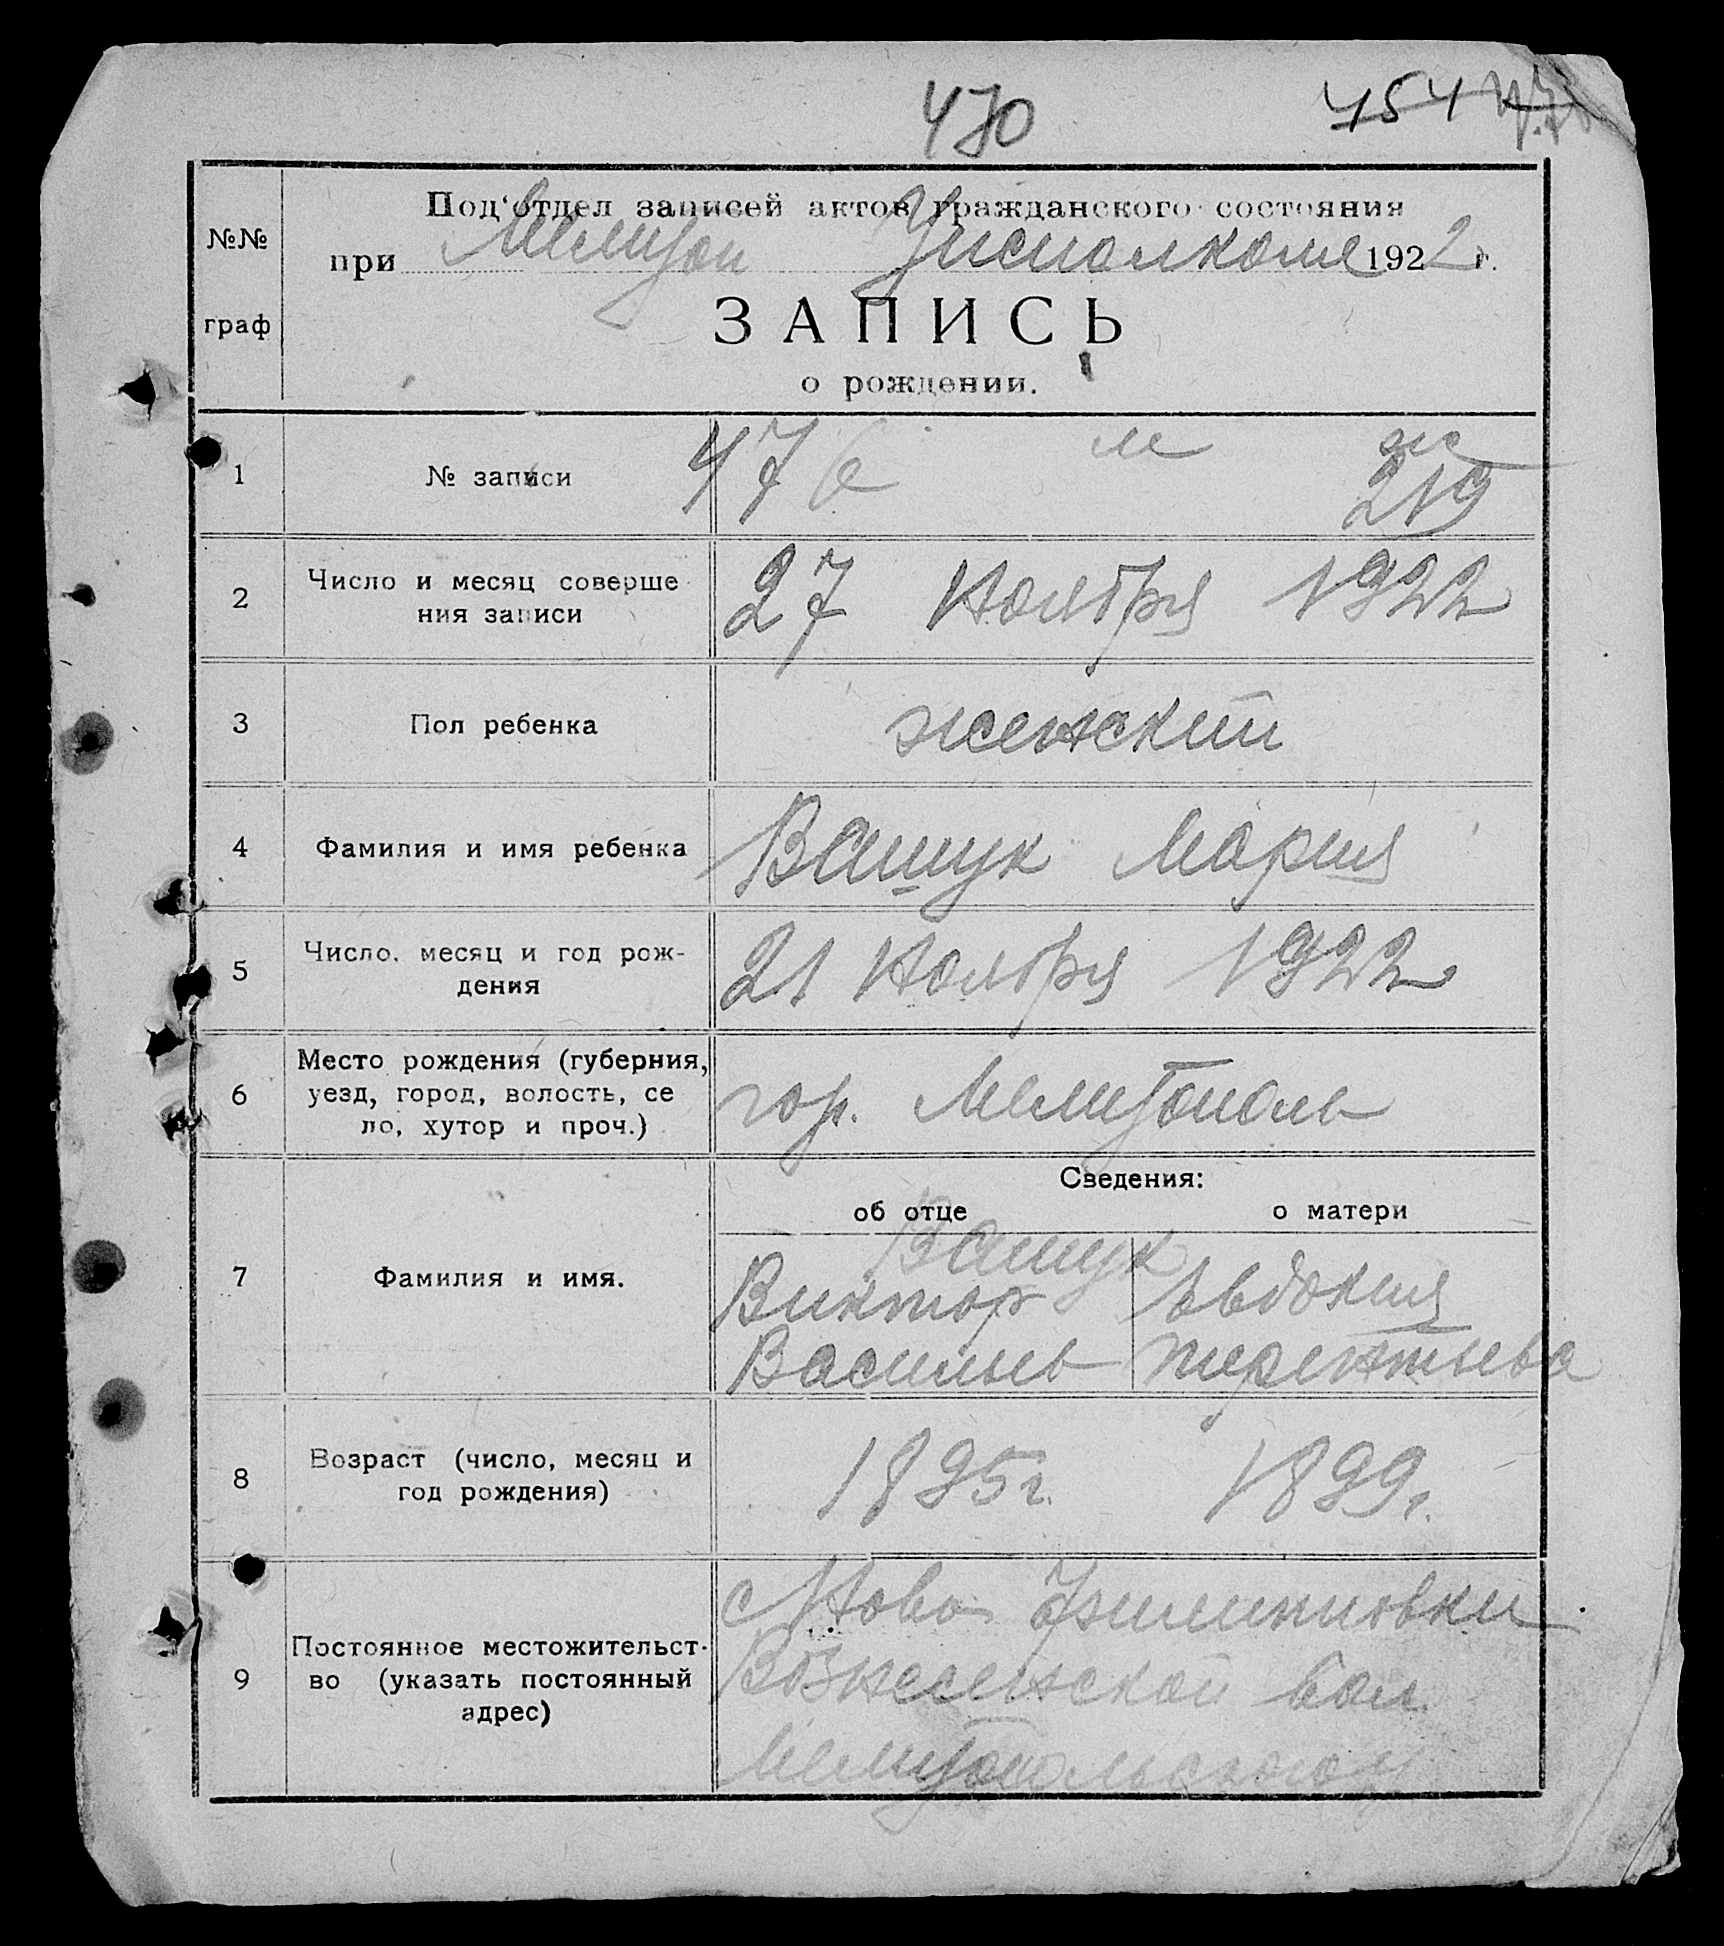 470 454
Под'отдел записей актов гражданского состояния
№№
при Мелитоп Уисполкоме 1922 г.
граф
ЗАПИСЬ
о рождении.
м ж
1 № записи 476 219
2 Число и месяц соверше 27 Ноября 1922
ния записи
3 Пол ребенка женский
4 Фамилия и имя ребенка Вашук Мария
5 Число, месяц и год рож- 21 Ноября 1922
дения
Место рождения (губерния,
6 уезд, город, волость, се гор. Мелитополь
ло, хутор и проч.)
Сведения:
об отце о матери
Вашук
7 Фамилия и имя. Виктор Евдокия
Васильев Терентьева
8 Возраст (число, месяц и 1895 г. 1899 г.
год рождения)
с Ново Филипповки
Постоянное местожительст-
9 во (указать постоянный Вознесенской вол.
адрес)
Мелитопольского у